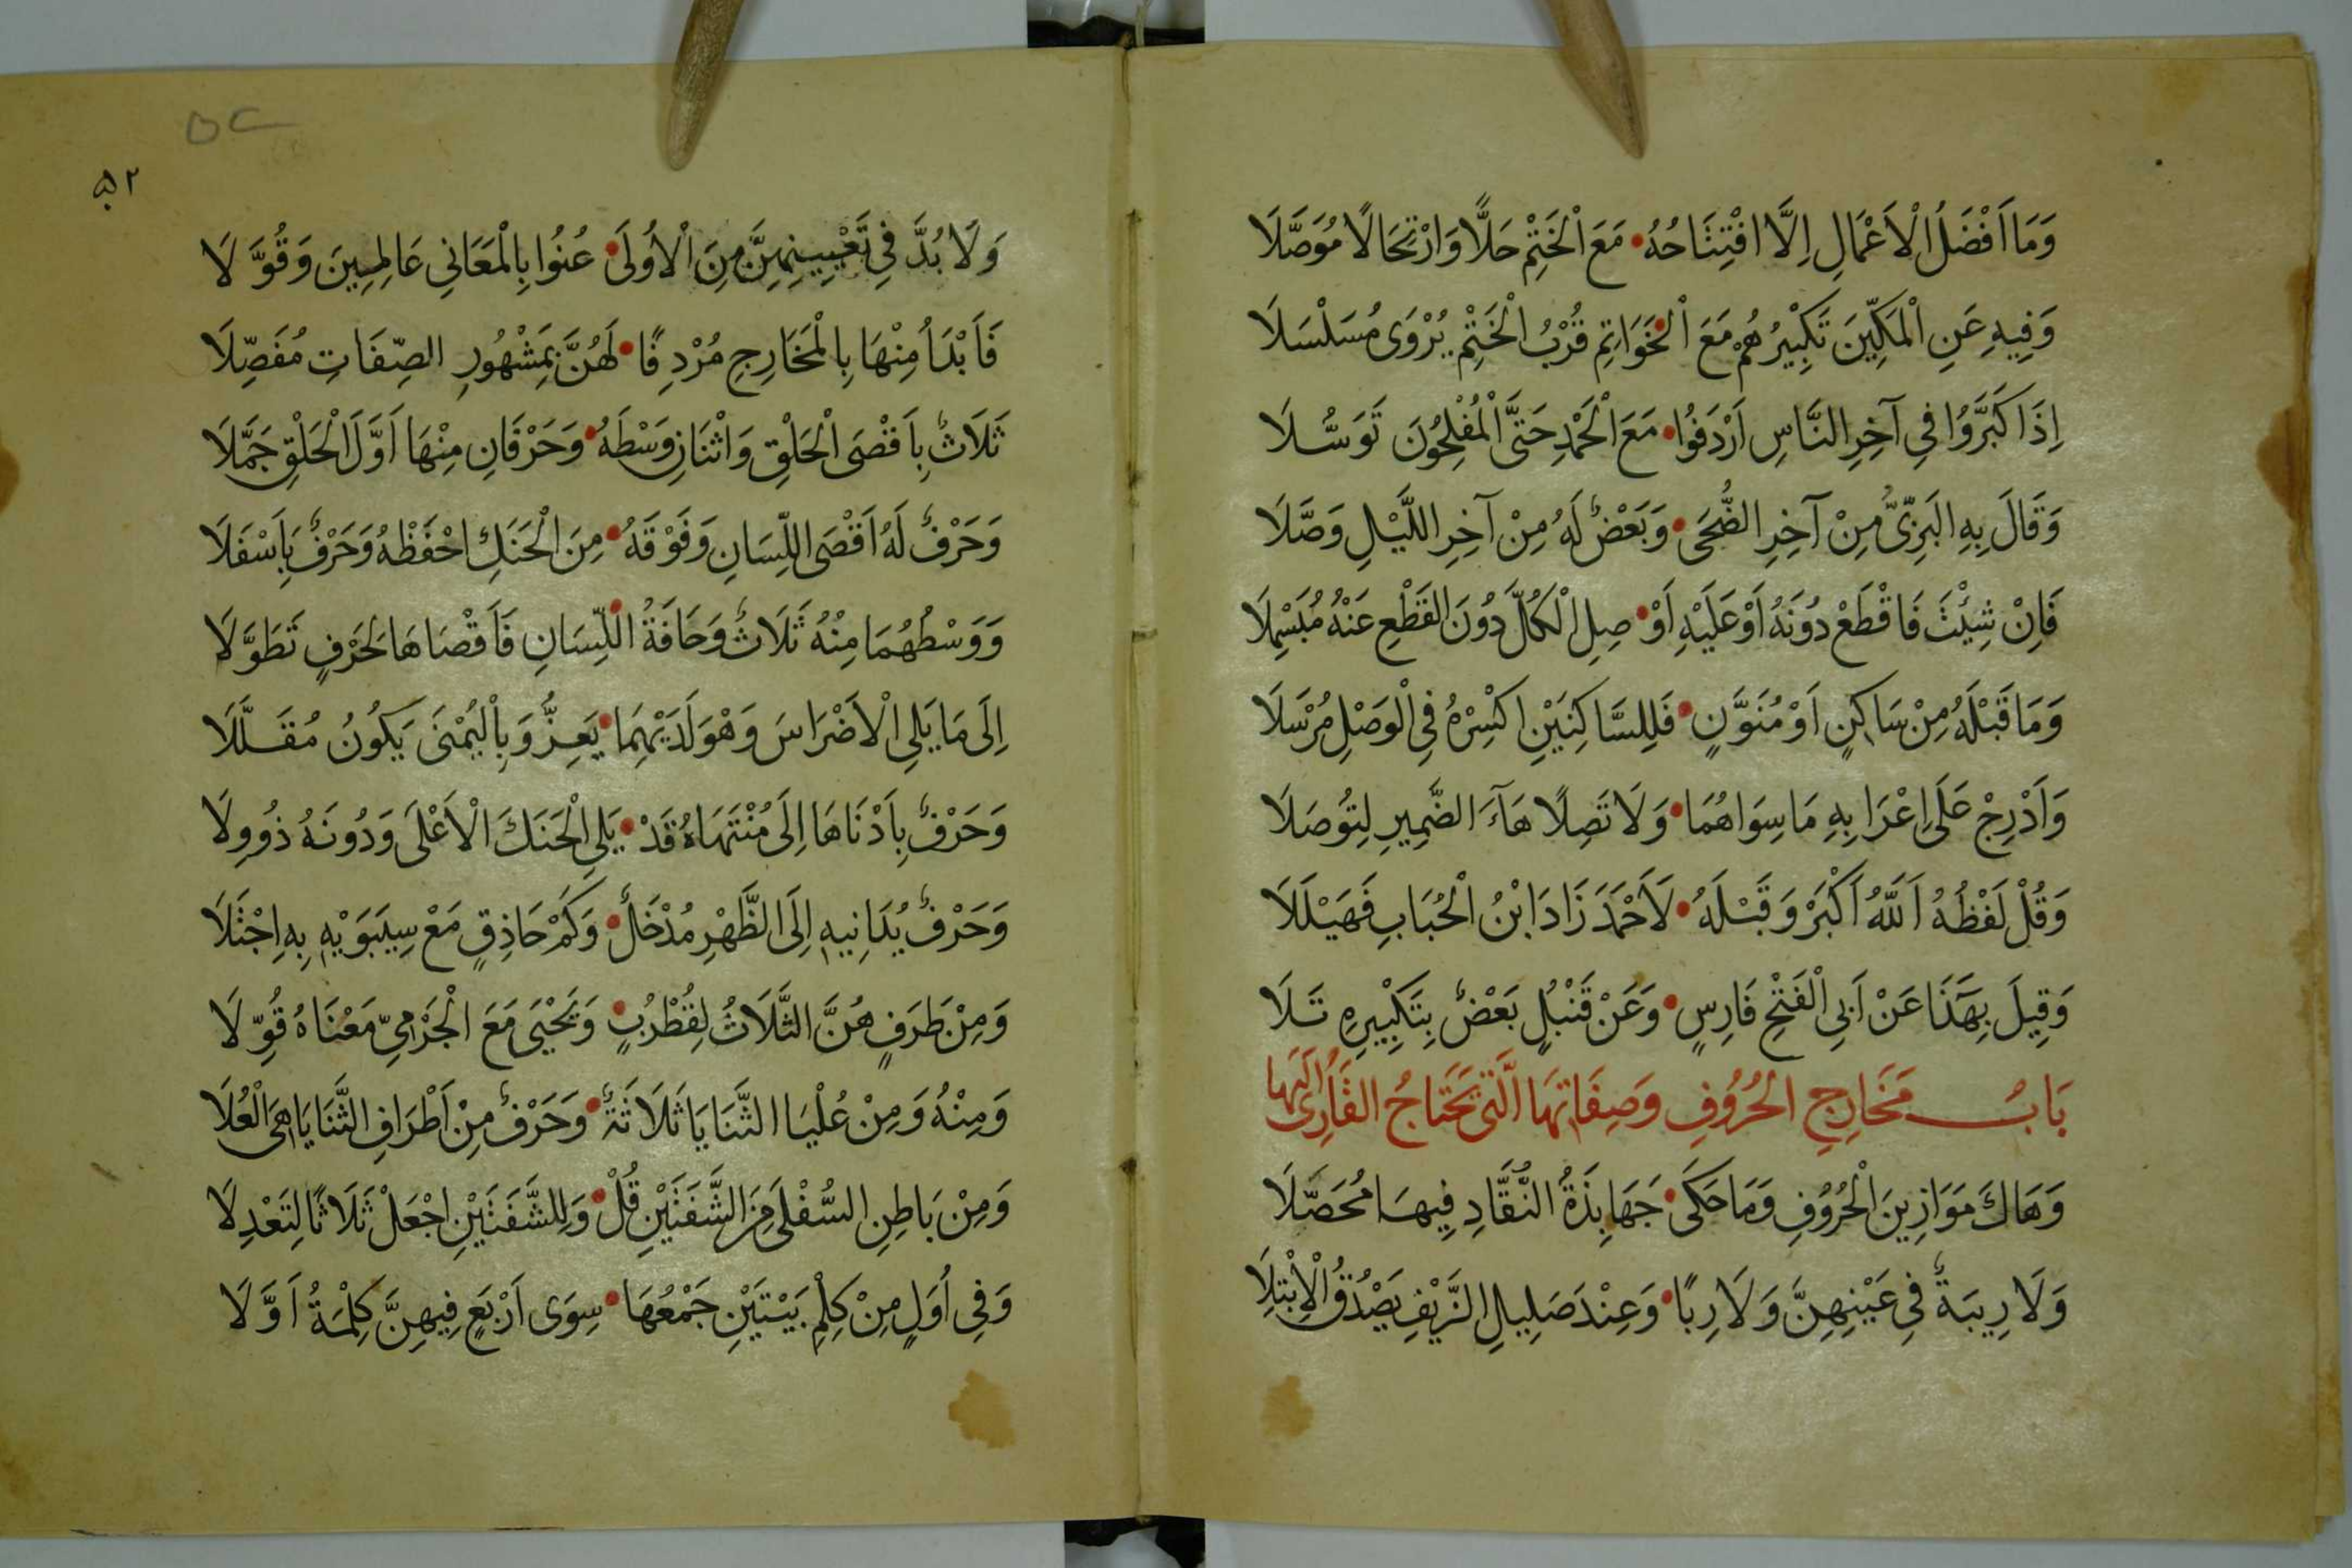 وَمَا اَفْضَلُ الْاَعْمَالِ اِلَّا افْتِتَاحُهُ • مَعَ الْخَتْمِ حَلًّا وَارْتِحَالًا مُوَصَّلَا
وَفِيهِ عَنِ الْمَكِّيّنَ تَكْبِيْرُهُمْ مَعَ الْخَوَاتِمِ قُرْبُ الْخَتْمِ يُرْوَى مُسَلْسَلَا
اِذَا كَبَّرُوا فِي آخِرِ النَّاسِ اَرْدَفُوا • مَعَ الْحَمْدِ حَتَّى الْمُفْلِحُونَ تَوَسُّلَا
وَقَالَ بِهِ الْبَزِّىُّ مِنْ آخِرِ الضُّحَى • وَبَعْضٌ لَهُ مِنْ آخِرِ اللَّيْلِ وَصَّلَا
فَاِنْ شِئْتَ فَاقْطَعْ دُونَهُ اَوْ عَلَيْهِ اَوْ • صِلِ الْكُلَّ دُونَ الْقَطْعِ عَنْهُ مُبَسْمِلَا
وَمَا قَبْلَهُ مِنْ سَاكِنٍ اَوْ مُنَوَّنٍ • فَلِلسَّاكِنَيْنِ اكْسِرْهُ فِي الْوَصْلِ مُرْسَلَا
وَاَدْرِجْ عَلَى اِعْرَابِهِ مَا سِوَاهُمَا • وَلَا تَصِلًا هَاءَ الضَّمِيرِ لِتُوصَلَا
وَقُلْ لَفْظُهُ اَللّٰهُ اَكْبَرْ وَقَبْلَهُ • لَاَحْمَدَ زَادَ ابْنُ الْحُبَابِ فَهَيْلَلَا
وَقِيلَ بِهَذَا عَنْ اَبِي الْفَتْحِ فَارِسٍ • وَعَنْ قَنْبُلٍ بَعْضٌ بِتَكْبِيْرِهِ تَلَا
بَابُ مَخَارِجِ الْحُرُوفِ وَصِفَاتِهَا الَّتِي يَحْتَاجُ الْقَارِئُ اِلَيْهَا
وَهَاكَ مَوَازِينَ الْحُرُوفِ وَمَا حَكَى • جَهَابِذَةُ النُّقَّادِ فِيهَا مُحَصَّلَا
وَلَا رِيبَةٌ فِي عَيْنِهِنَّ وَلَا رِبًا • وَعِنْدَ صَلِيلِ الزَّيْفِ يَصْدُقُ الْاِبْتِلَا
۵۲
۵۲
وَلَا بُدَّ فِي تَعْيِينِهِنَّ مِنَ الْاُولَى • عُنُوا بِالْمَعَانِي عَالِمِينَ وَقُوَّلَا
فَاَبْدَاُ مِنْهَا بِالْمَخَارِجِ مُرْدِفًا • لَهُنَّ بِمَشْهُورِ الصِّفَاتِ مُفَصِّلَا
ثَلَاثٌ بِاَقْصَى الْحَلْقِ وَاثْنَانِ وَسْطَهُ • وَحَرْفَانِ مِنْهَا اَوَّلَ الْحَلْقِ جَمَّلَا
وَحَرْفٌ لَهُ اَقْصَى اللِّسَانِ وَفَوْقَهُ • مِنَ الْحَنَكِ احْفَظْهُ وَحَرْفٌ بِاَسْفَلَا
وَوَسْطُهُمَا مِنْهُ ثَلَاثٌ وَحَافَةُ اللِّسَانِ فَاَقْصَاهَا لِحَرْفٍ تَطَوَّلَا
اِلَى مَا يَلِي الْاَضْرَاسَ وَهْوَ لَدَيْهِمَا • يَعِزُّ وَبِالْيُمْنَى يَكُونُ مُقَلَّلَا
وَحَرْفٌ بِاَدْنَاهَا اِلَى مُنْتَهَاهُ قَدْ • يَلِي الْحَنَكَ الْاَعْلَى وَدُونَهُ ذُو وِلَا
وَحَرْفٌ يُدَانِيهِ اِلَى الظَّهْرِ مُدْخَلٌ • وَكَمْ حَاذِقٍ مَعْ سِيبَوَيْهِ بِهِ اِجْتَلَا
وَمِنْ طَرَفٍ هُنَّ الثَّلَاثُ لِقُطْرُبٍ • وَيَحْيَى مَعَ الْجَرْمِيِّ مَعْنَاهُ قُوِّلَا
وَمِنْهُ وَمِنْ عُلْيَا الثَّنَايَا ثَلَاثَةٌ • وَحَرْفٌ مِنْ اَطْرَافِ الثَّنَايَا هِىَ الْعُلَا
وَمِنْ بَاطِنِ السُّفْلَى مِنَ الشَّفَتَيْنِ قُلْ • وَلِلشَّفَتَيْنِ اجْعَلْ ثَلَاثًا لِتَعْدِلَا
وَفِي اُوَلٍ مِنْ كِلْمِ بَيْتَيْنِ جَمْعُهَا • سِوَى اَرْبَعٍ فِيهِنَّ كِلْمَةُ اَوَّلَا